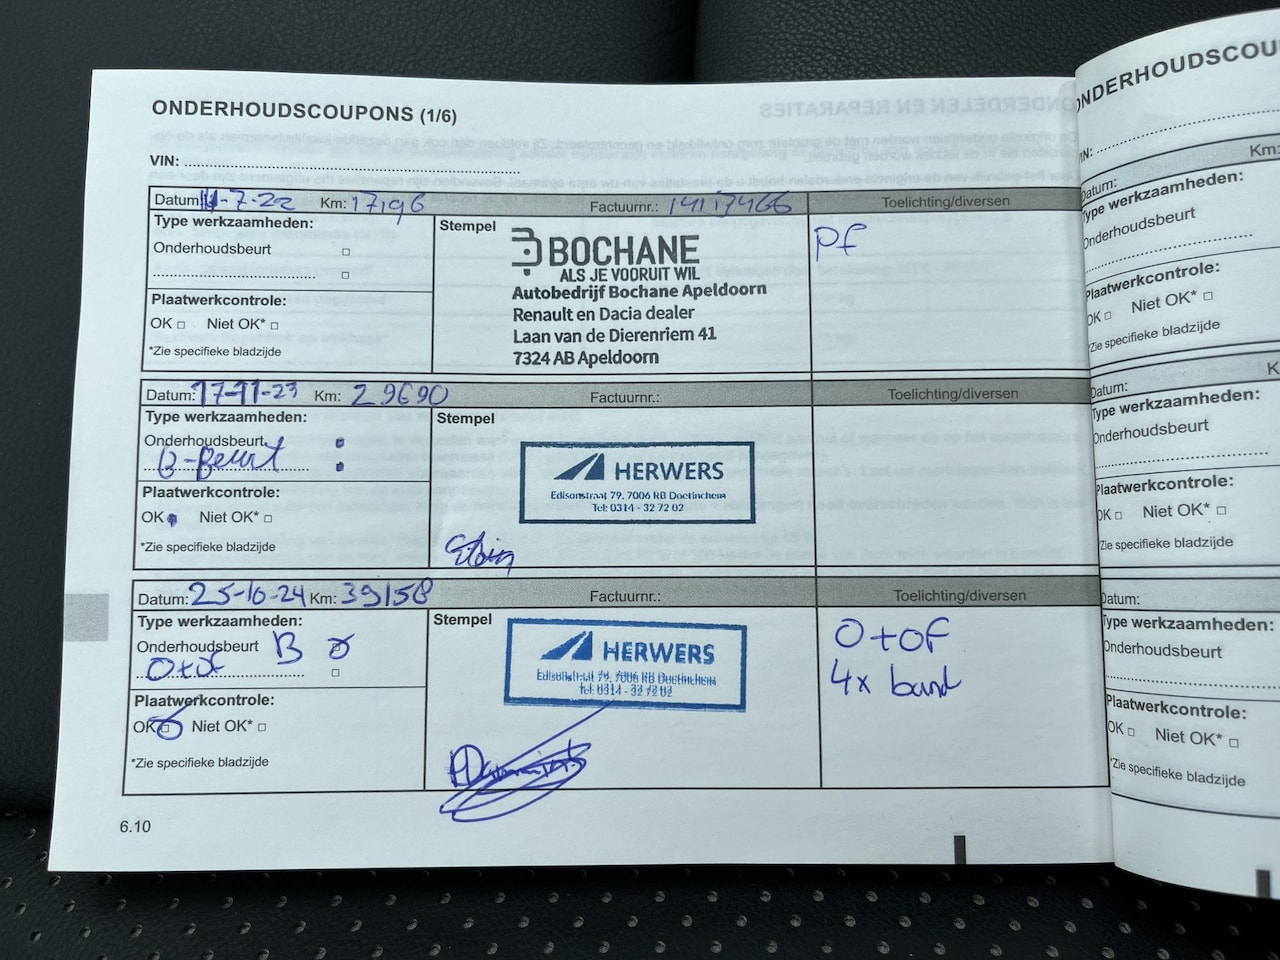 ONDERHOUDSCOUPONS (1/6)
VIN:
Datum: 11-7-22 Km: 17196 Factuurnr.: 14117466 Toelichting/diversen
Type werkzaamheden:
Onderhoudsbeurt
Plaatwerkcontrole:
OK Niet OK*
*Zie specifieke bladzijde
Stempel
BOCHANE
ALS JE VOORUIT WIL
Autobedrijf Bochane Apeldoorn
Renault en Dacia dealer
Laan van de Dierenriem 41
7324 AB Apeldoorn
PF
Datum: 17-11-23 Km: 29690 Factuurnr.: Toelichting/diversen
Type werkzaamheden:
Onderhoudsbeurt
B-Beurt
Plaatwerkcontrole:
OK Niet OK*
*Zie specifieke bladzijde
Stempel
HERWERS
Edisonstraat 79, 7006 RB Doetinchem
Tel: 0314 - 32 72 02
Datum: 25-10-24 Km: 39158 Factuurnr.: Toelichting/diversen
Type werkzaamheden:
Onderhoudsbeurt B
O+OF
Plaatwerkcontrole:
OK Niet OK*
*Zie specifieke bladzijde
Stempel
HERWERS
Edisonstraat 79, 7006 RB Doetinchem
Tel: 0314 - 32 72 02
O+OF
4x band
6.10
ONDERHOUDSCOU
Km:
Datum:
Type werkzaamheden:
Onderhoudsbeurt
Plaatwerkcontrole:
OK Niet OK*
*Zie specifieke bladzijde
Datum:
Type werkzaamheden:
Onderhoudsbeurt
Plaatwerkcontrole:
OK Niet OK*
*Zie specifieke bladzijde
Datum:
Type werkzaamheden:
Onderhoudsbeurt
Plaatwerkcontrole:
OK Niet OK*
*Zie specifieke bladzijde